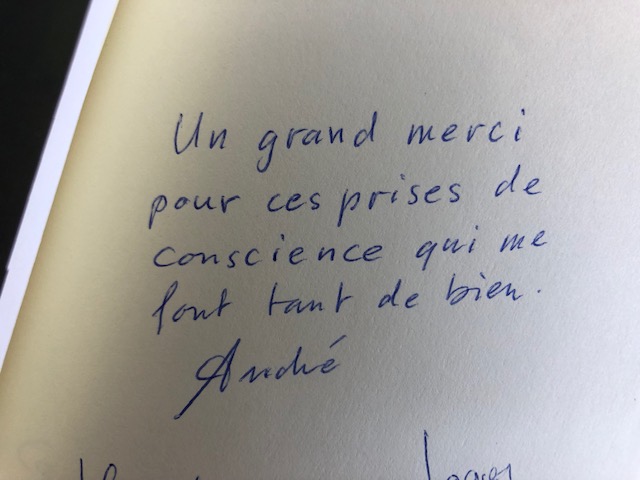 Un grand merci
pour ces prises de
conscience qui me
font tant de bien.
André